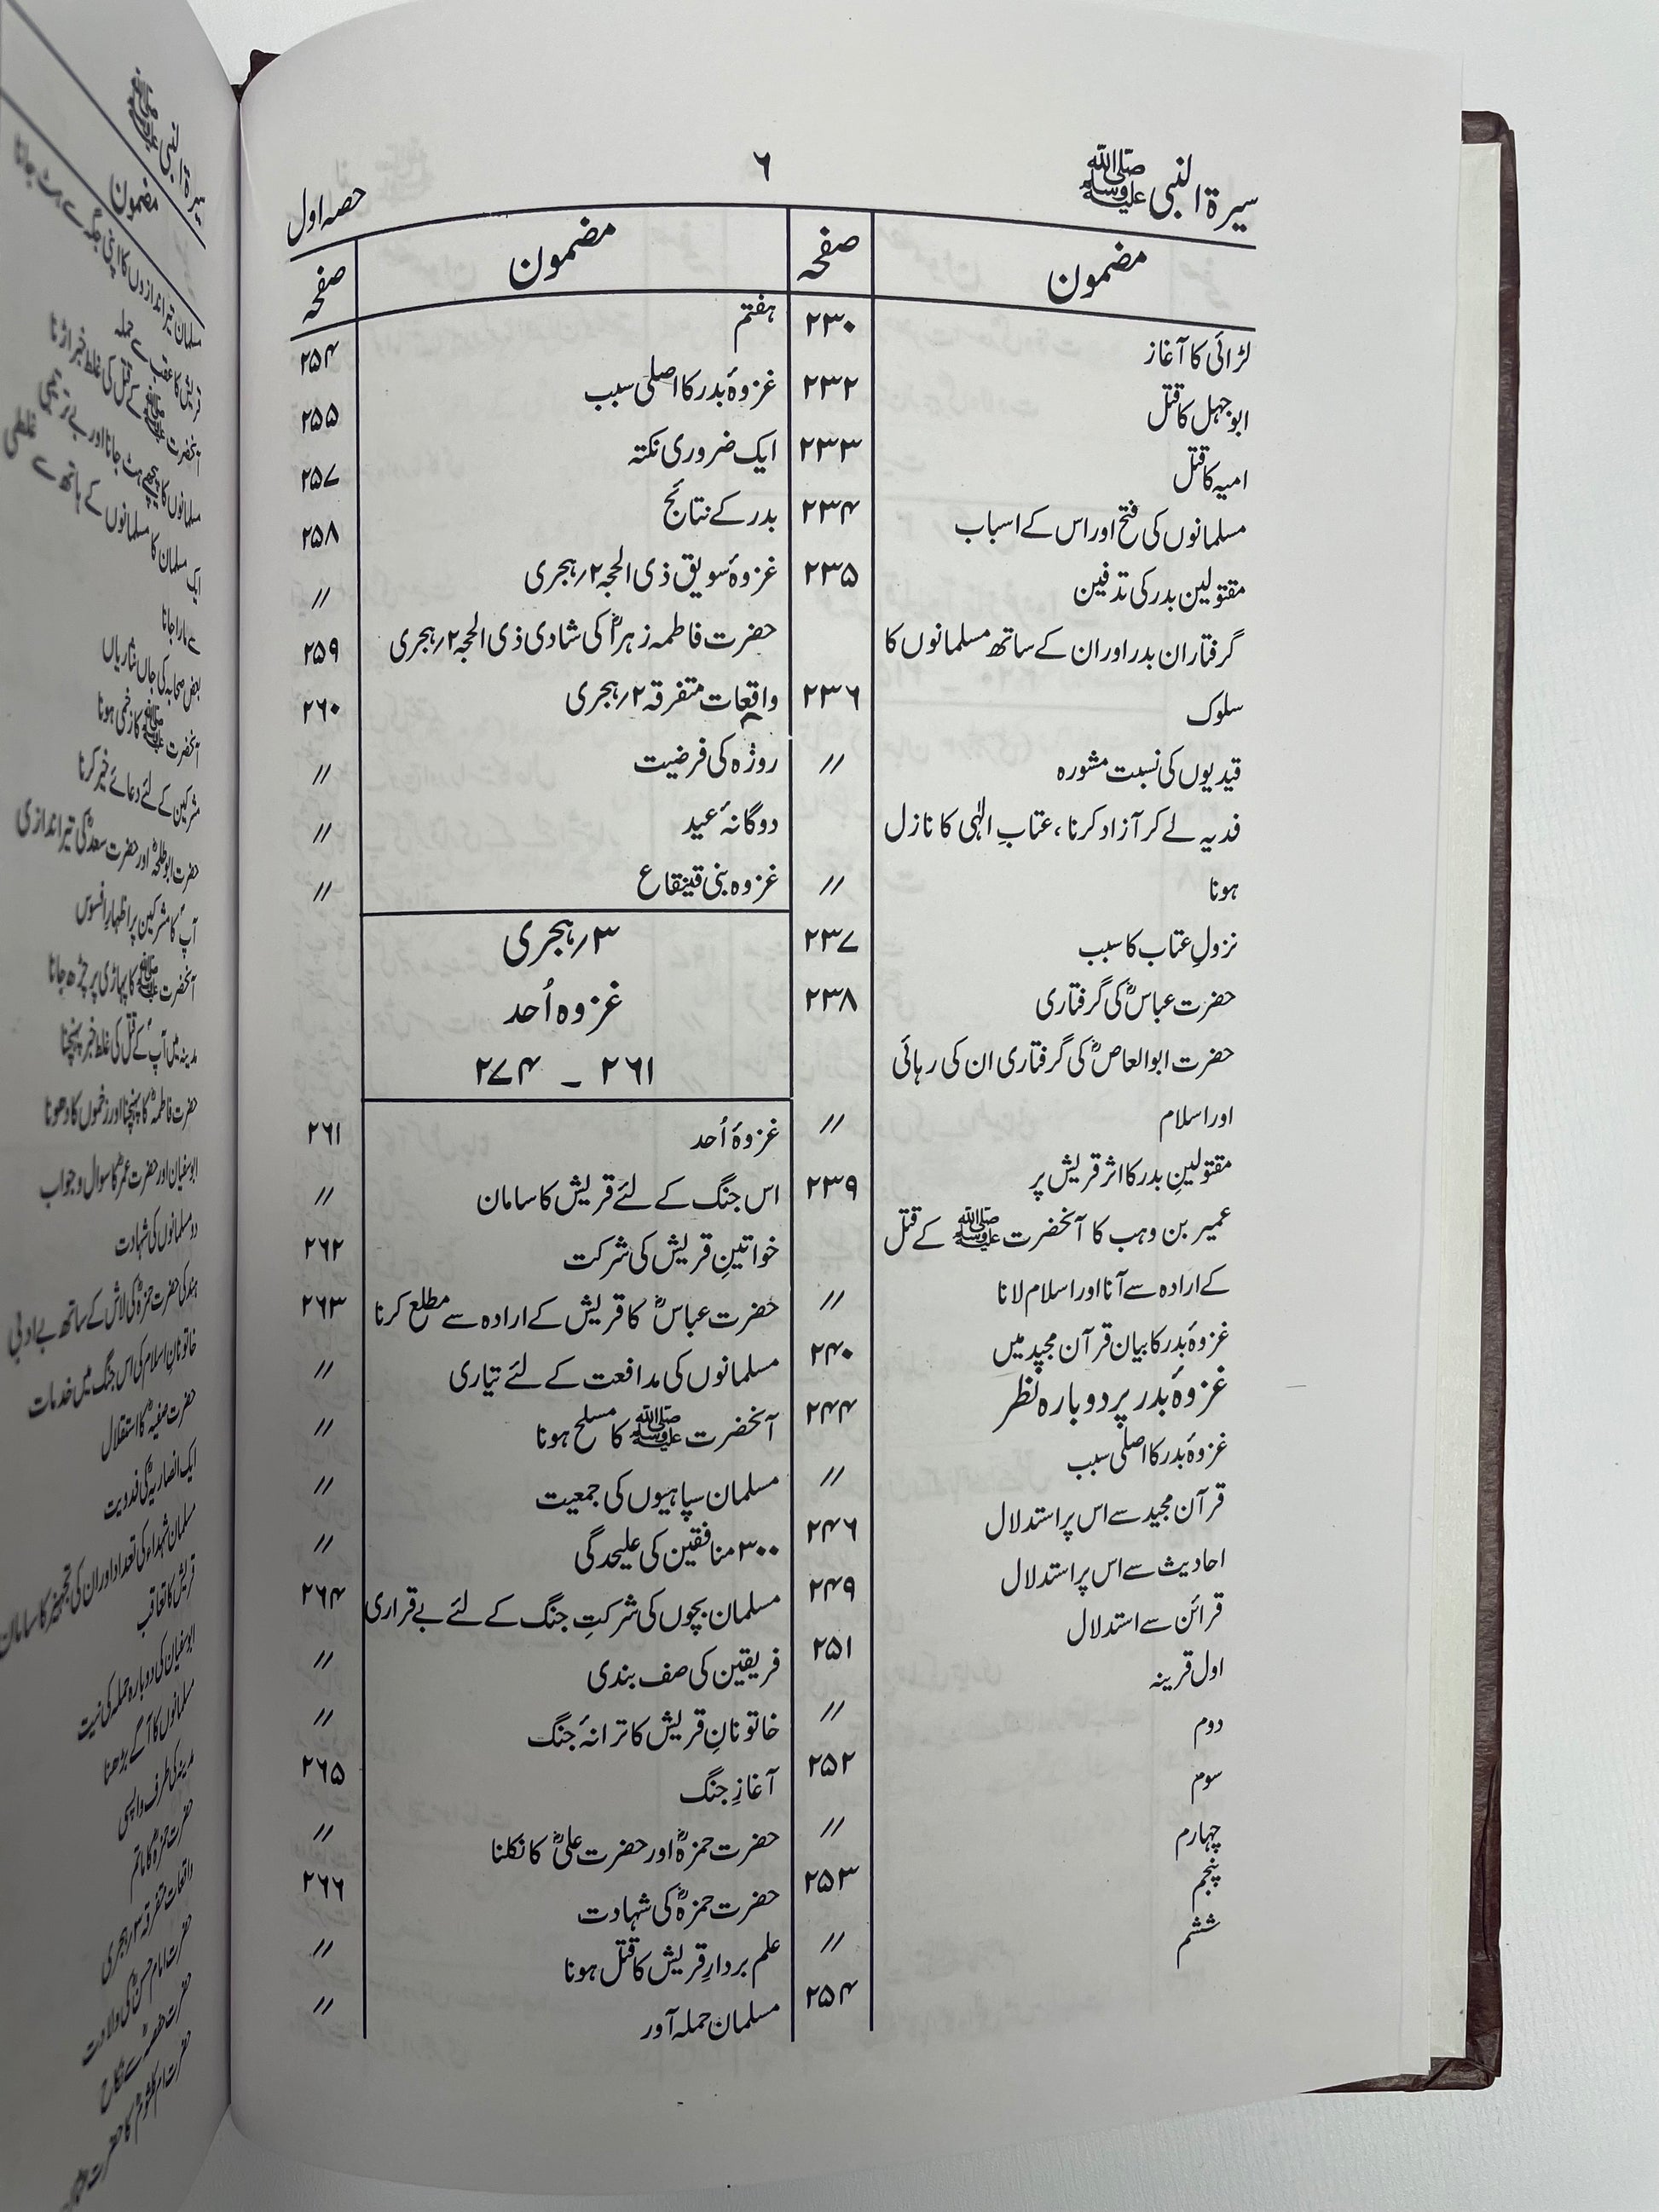 سیرۃ النبی ﷺ
۶
حصہ اول
مضمون صفحہ
لڑائی کا آغاز ۲۳۰
ابو جہل کا قتل ۲۳۲
امیہ کا قتل ۲۳۳
مسلمانوں کی فتح اور اس کے اسباب ۲۳۴
مقتولین بدر کی تدفین ۲۳۵
گرفتاران بدر اور ان کے ساتھ مسلمانوں کا
سلوک ۲۳۶
قیدیوں کی نسبت مشورہ //
فدیہ لے کر آزاد کرنا، عتابِ الٰہی کا نازل
ہونا //
نزولِ عتاب کا سبب ۲۳۷
حضرت عباسؓ کی گرفتاری ۲۳۸
حضرت ابوالعاصؓ کی گرفتاری ان کی رہائی
اور اسلام //
مقتولینِ بدر کا اثر قریش پر ۲۳۹
عمیر بن وہب کا آنحضرت ﷺ کے قتل
کے ارادہ سے آنا اور اسلام لانا //
غزوۂ بدر کا بیان قرآن مجید میں ۲۴۰
غزوۂ بدر پر دوبارہ نظر ۲۴۴
غزوۂ بدر کا اصلی سبب //
قرآن مجید سے اس پر استدلال ۲۴۶
احادیث سے اس پر استدلال ۲۴۹
قرائن سے استدلال ۲۵۱
اول قرینہ //
دوم ۲۵۲
سوم //
چہارم ۲۵۳
پنجم //
ششم ۲۵۴
مضمون صفحہ
ہفتم ۲۵۴
غزوۂ بدر کا اصلی سبب ۲۵۵
ایک ضروری نکتہ ۲۵۷
بدر کے نتائج ۲۵۸
غزوۂ سویق ذی الحجہ ۲؍ہجری //
حضرت فاطمہ زہراؓ کی شادی ذی الحجہ ۲؍ہجری ۲۵۹
واقعات متفرقہ ۲؍ہجری ۲۶۰
روزہ کی فرضیت //
دوگانۂ عید //
غزوہ بنی قینقاع //
۳؍ہجری
غزوہ اُحد
۲۶۱ ۔ ۲۷۴
غزوۂ اُحد ۲۶۱
اس جنگ کے لئے قریش کا سامان //
خواتینِ قریش کی شرکت ۲۶۲
حضرت عباسؓ کا قریش کے ارادہ سے مطلع کرنا ۲۶۳
مسلمانوں کی مدافعت کے لئے تیاری //
آنحضرت ﷺ کا مسلح ہونا //
مسلمان سپاہیوں کی جمعیت //
۳۰۰ منافقین کی علیحدگی //
مسلمان بچوں کی شرکتِ جنگ کے لئے بے قراری ۲۶۴
فریقین کی صف بندی //
خاتونانِ قریش کا ترانۂ جنگ //
آغازِ جنگ ۲۶۵
حضرت حمزہؓ اور حضرت علیؓ کا نکلنا //
حضرت حمزہؓ کی شہادت ۲۶۶
علم بردارِ قریش کا قتل ہونا //
مسلمان حملہ آور //
سیرۃ النبی ﷺ
مضمون
مسلمان تیر اندازوں کا اپنی جگہ سے ہٹ جانا
قریش کا عقب سے حملہ
آنحضرت ﷺ کے قتل کی غلط خبر اڑنا
مسلمانوں کا پیچھے ہٹ جانا اور بے ترتیبی
ایک مسلمان کا مسلمانوں کے ہاتھ سے غلطی
سے مارا جانا
بعض صحابہ کی جاں نثاریاں
آنحضرت ﷺ کا زخمی ہونا
مشرکین کے لئے دعائے خیر کرنا
حضرت ابو طلحہؓ اور حضرت سعدؓ کی تیر اندازی
آپؐ کا مشرکین پر اظہارِ افسوس
آنحضرت ﷺ کا پہاڑی پر چڑھ جانا
مدینہ میں آپؐ کے قتل کی غلط خبر پہنچنا
حضرت فاطمہؓ کا پہنچنا اور زخموں کا دھونا
ابوسفیان اور حضرت عمرؓ کا سوال و جواب
دو مسلمانوں کی شہادت
ہند کی حضرت حمزہؓ کی لاش کے ساتھ بے ادبی
خاتونانِ اسلام کی اس جنگ میں خدمات
حضرت صفیہؓ کا استقلال
ایک انصاریہؓ کی فدویت
مسلمان شہداء کی تعداد اور ان کی تجہیز کا سامان
قریش کا تعاقب
ابوسفیان کی دوبارہ حملہ کی نیت
مسلمانوں کا آگے بڑھنا
مدینہ کی طرف واپسی
حضرت حمزہؓ کا ماتم
واقعات متفرقہ ۳؍ہجری
حضرت امام حسنؓ کی ولادت
حضرت حفصہؓ سے نکاح
حضرت ام کلثومؓ کا حضرت